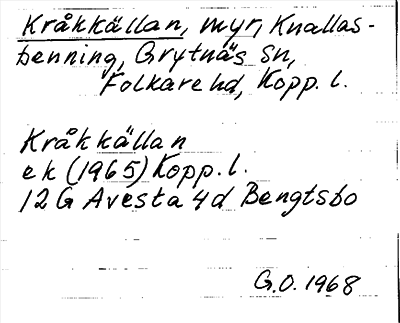 Kråkkällan, myr, Knallas-
benning, Grytnäs sn,
Folkare hd, Kopp. l.
Kråkkällan
ek (1965) Kopp. l.
12 G Avesta 4d Bengtsbo
G.O. 1968